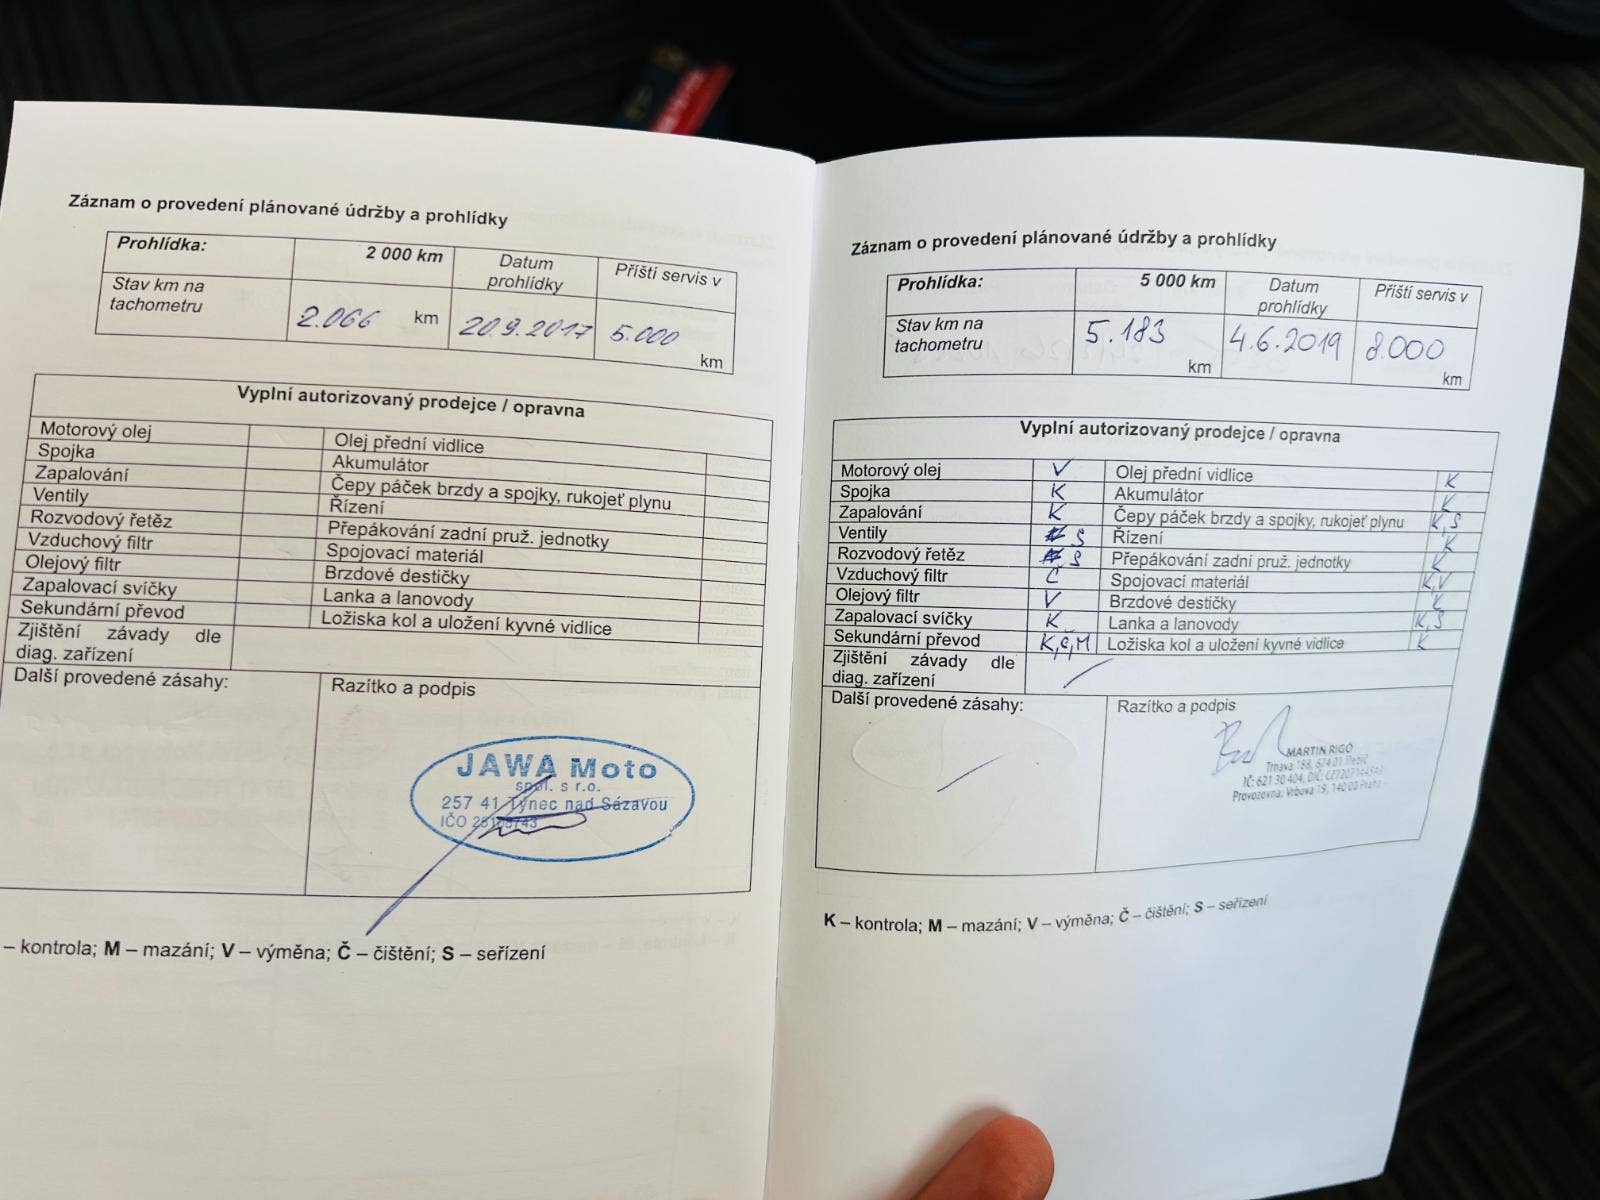 Záznam o provedení plánované údržby a prohlídky
Prohlídka: 2 000 km Datum prohlídky Příští servis v
Stav km na tachometru 2.066 km 20.9.2017 5.000 km
Vyplní autorizovaný prodejce / opravna
Motorový olej Olej přední vidlice
Spojka Akumulátor
Zapalování Čepy páček brzdy a spojky, rukojeť plynu
Ventily Řízení
Rozvodový řetěz Přepákování zadní pruž. jednotky
Vzduchový filtr Spojovací materiál
Olejový filtr Brzdové destičky
Zapalovací svíčky Lanka a lanovody
Sekundární převod Ložiska kol a uložení kyvné vidlice
Zjištění závady dle
diag. zařízení
Další provedené zásahy: Razítko a podpis
JAWA Moto
spol. s r.o.
257 41 Týnec nad Sázavou
IČO
– kontrola; M – mazání; V – výměna; Č – čištění; S – seřízení
Záznam o provedení plánované údržby a prohlídky
Prohlídka: 5 000 km Datum prohlídky Příští servis v
Stav km na tachometru 5.183 km 4.6.2019 8.000 km
Vyplní autorizovaný prodejce / opravna
Motorový olej V Olej přední vidlice K
Spojka K Akumulátor K
Zapalování K Čepy páček brzdy a spojky, rukojeť plynu K,S
Ventily S Řízení K
Rozvodový řetěz S Přepákování zadní pruž. jednotky K
Vzduchový filtr Č Spojovací materiál K,V
Olejový filtr V Brzdové destičky K
Zapalovací svíčky K Lanka a lanovody K,S
Sekundární převod K,Č,M Ložiska kol a uložení kyvné vidlice K
Zjištění závady dle
diag. zařízení
Další provedené zásahy: Razítko a podpis
MARTIN RIGÓ
Trnava 188, 674 01 Třebíč
IČ: 621 30 404, DIČ:
Provozovna: Vrbova 19, 140 00 Praha
K – kontrola; M – mazání; V – výměna; Č – čištění; S – seřízení